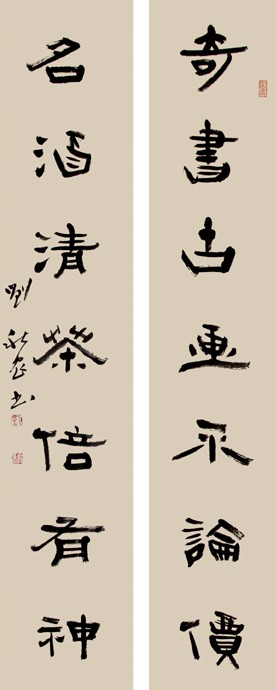 奇書古畫不論價
名酒清茶倍有神
劉秋書